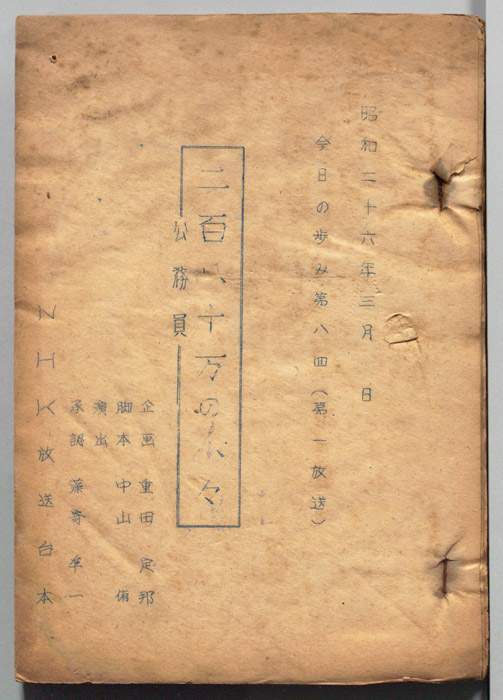 昭和二十六年三月 日
今日の歩み第八回（第一放送）
二百八十万の人々
公務員
企画 重田定邦
脚本 中山侑
演出
承認 藻寄準一
NHK放送台本